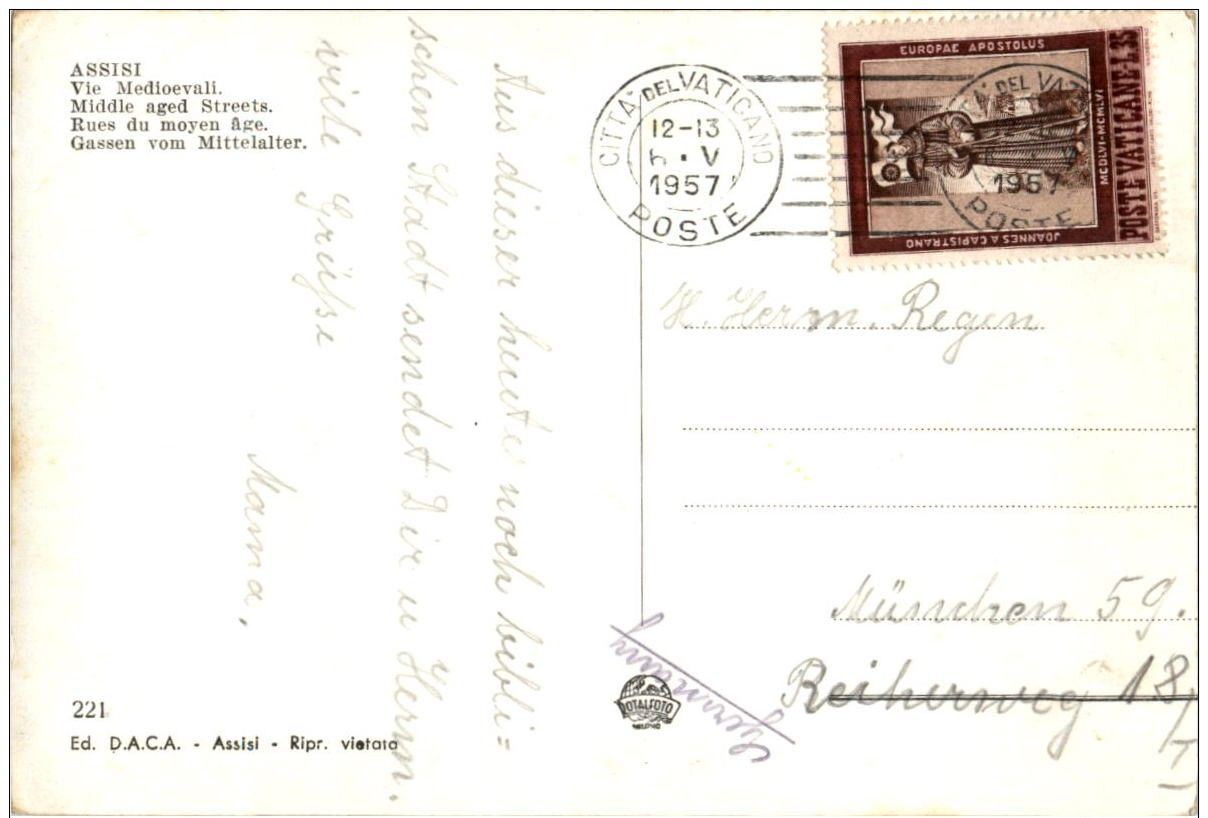 ASSISI
Vie Medioevali.
Middle aged Streets.
Rues du moyen âge.
Gassen vom Mittelalter.
Aus dieser heute noch bibli=
schen Stadt sendet Dir u Herm.
viele Grüsse
Mama.
221
Ed. D.A.C.A. - Assisi - Ripr. vietata
CITTA DEL VATICANO
12-13
V
1957
POSTE
DEL VAT
1957
POSTE
EUROPAE APOSTOLUS
MCDLVI-MCMLVI
JOANNES A CAPISTRANO
POSTE VATICANE L.35
H. Herrm. Regen
München 59.
Reiherweg 18/
I
Germany